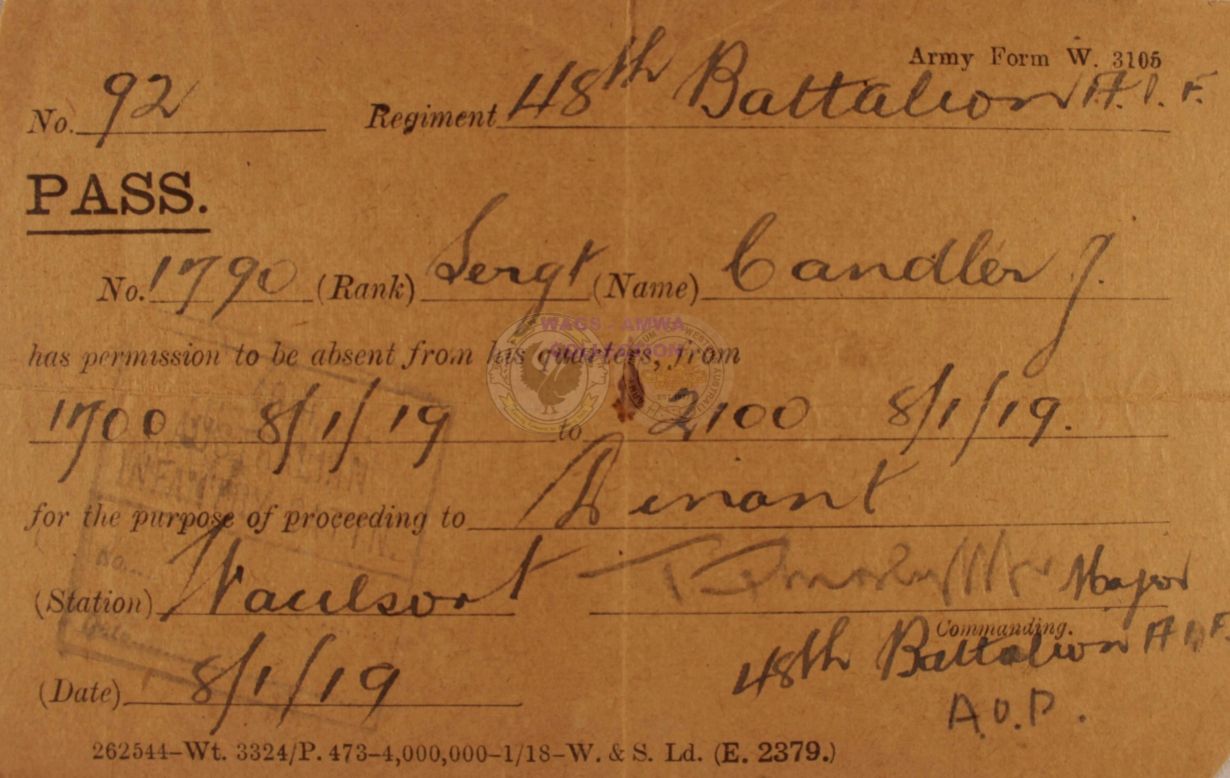 Army Form W. 3105
No. 92 Regiment 48th Battalion A.I.F.
PASS.
No. 1790 (Rank) Sergt (Name) Candler J.
WAGS - AMWA
has permission to be absent from his quarters, from
1700 8/1/19 to 2100 8/1/19.
for the purpose of proceeding to Dinant
(Station) Waulsort Major
Commanding.
48th Battalion A.I.F.
(Date) 8/1/19
262544–Wt. 3324/P. 473–4,000,000–1/18–W. & S. Ld. (E. 2379.)